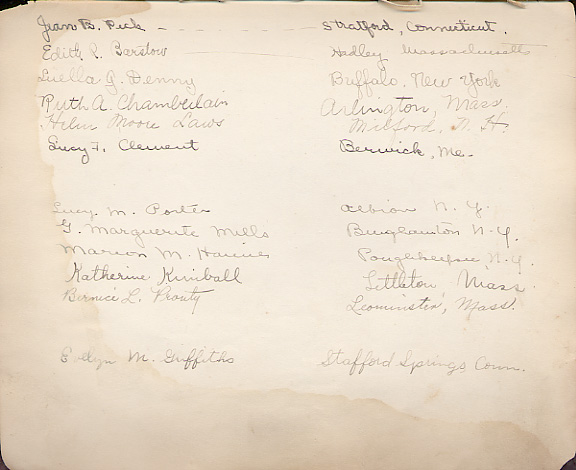 Jean B. Peck - - - - - Stratford, Connecticut.
Edith R. Barstow Hadley Massachusetts
Luella G. Denny Buffalo, New York
Ruth A. Chamberlain Arlington, Mass.
Helen Moore Laws Milford, N. H.
Lucy F. Clement Berwick, Me.
Lucy M. Porter Albion N. Y.
G. Marguerite Mills Binghamton N.Y.
Marion M. Haines Poughkeepsie N.Y.
Katherine Kimball Littleton, Mass.
Bernice L. Prouty Leominster, Mass.
Evelyn M. Griffiths Stafford Springs, Conn.